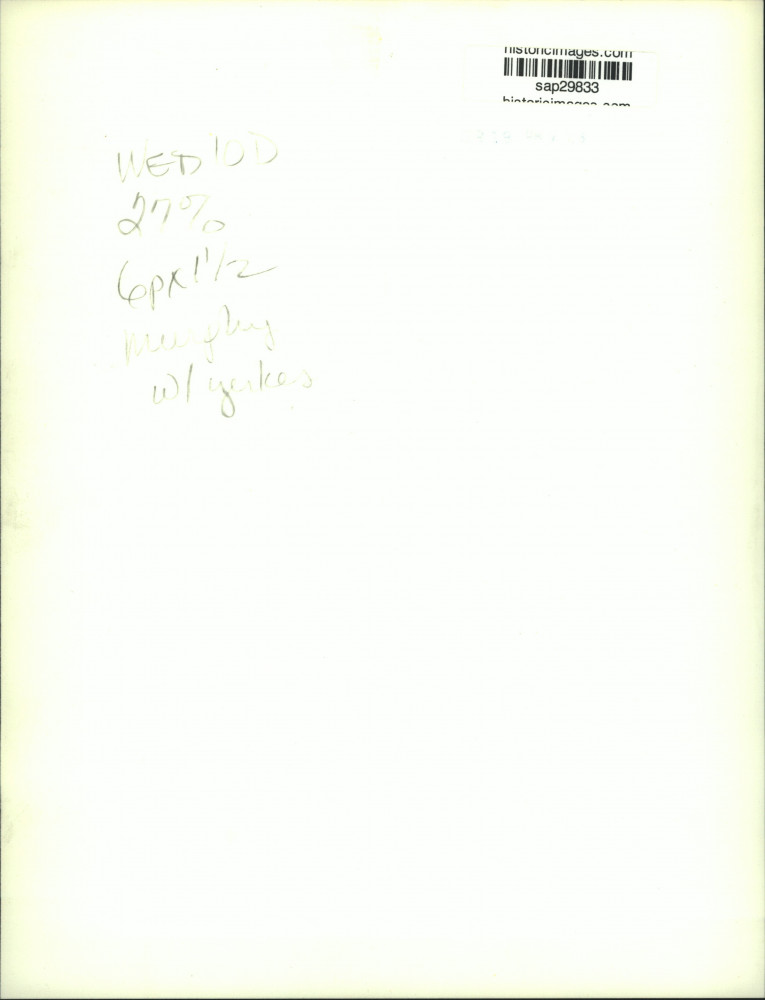 historicimages.com
sap29833
historicimages.com
WED 10D
27%
6px1 1/2
Murphy
w/ yerkes